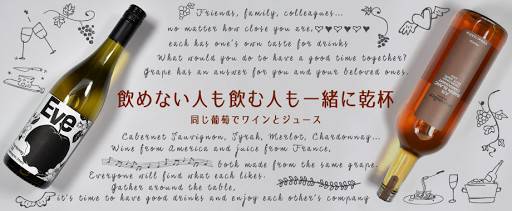 Friends, family, colleagues...
no matter how close you are,
each has one's own taste for drinks
What would you do to have a good time together?
Grape has an answer for you and your beloved ones.
飲めない人も飲む人も一緒に乾杯
同じ葡萄でワインとジュース
Cabernet Sauvignon, Syrah, Merlot, Chardonnay...
Wine from America and juice from France,
both made from the same grape.
Everyone will find what each likes.
Gather around the table,
it's time to have good drinks and enjoy each other's company
Eve